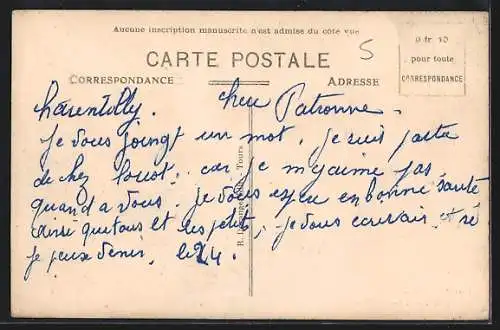 Aucune inscription manuscrite n'est admise du côté vue
5
0 fr 10
pour toute
CORRESPONDANCE
CARTE POSTALE
CORRESPONDANCE
ADRESSE
Charentilly. cher Patronne.
je vous joingt un mot. je suis parta
de chez car je m'yaime pas
quand a vous. je vous espeu en bonne santé
ainsi que tous et les petits, je vous et si
je peux venir, le 24.
Tours